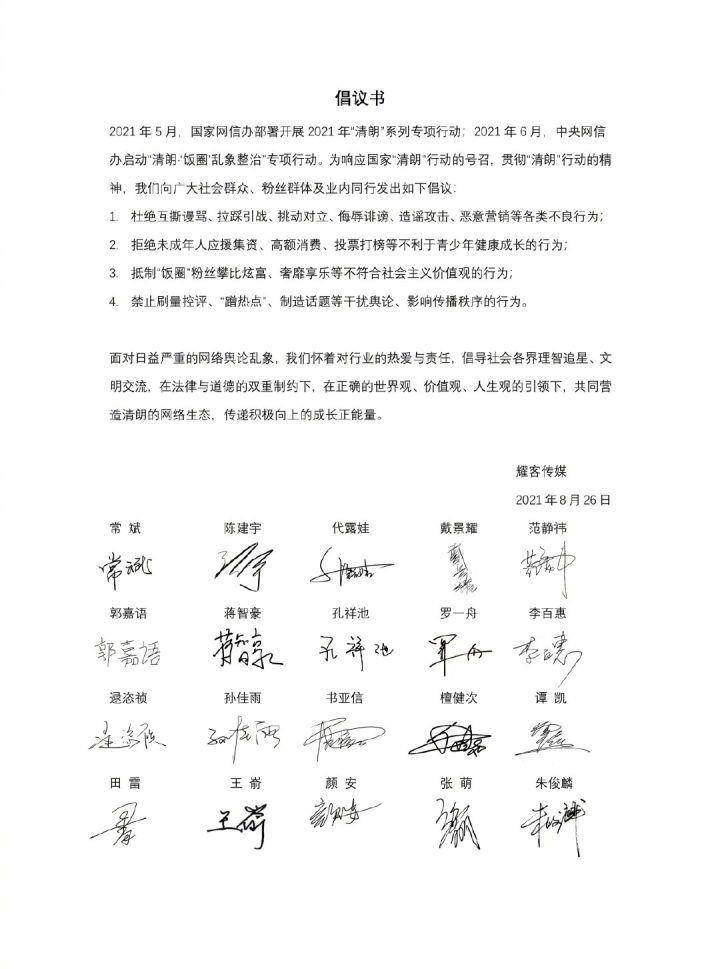 倡议书
2021 年 5 月，国家网信办部署开展 2021 年“清朗”系列专项行动；2021 年 6 月，中央网信
办启动“清朗·‘饭圈’乱象整治”专项行动。为响应国家“清朗”行动的号召，贯彻“清朗”行动的精
神，我们向广大社会群众、粉丝群体及业内同行发出如下倡议：
1. 杜绝互撕谩骂、拉踩引战、挑动对立、侮辱诽谤、造谣攻击、恶意营销等各类不良行为；
2. 拒绝未成年人应援集资、高额消费、投票打榜等不利于青少年健康成长的行为；
3. 抵制“饭圈”粉丝攀比炫富、奢靡享乐等不符合社会主义价值观的行为；
4. 禁止刷量控评、“蹭热点”、制造话题等干扰舆论、影响传播秩序的行为。
面对日益严重的网络舆论乱象，我们怀着对行业的热爱与责任，倡导社会各界理智追星、文
明交流，在法律与道德的双重制约下，在正确的世界观、价值观、人生观的引领下，共同营
造清朗的网络生态，传递积极向上的成长正能量。
耀客传媒
2021 年 8 月 26 日
常 斌 陈建宇 代露娃 戴景耀 范静祎
常斌
郭嘉语 蒋智豪 孔祥池 罗一舟 李百惠
郭嘉语 蒋智豪 孔祥池
逯恣祯 孙佳雨 书亚信 檀健次 谭 凯
逯恣祯 孙佳雨
田 雷 王 嵛 颜 安 张 萌 朱俊麟